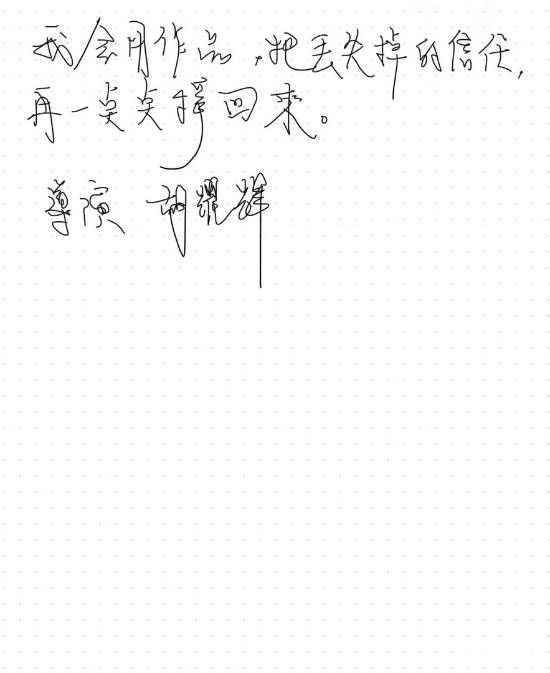 我会用作品,把丢失掉的信任,
再一点点撑回来。
導演 胡耀輝